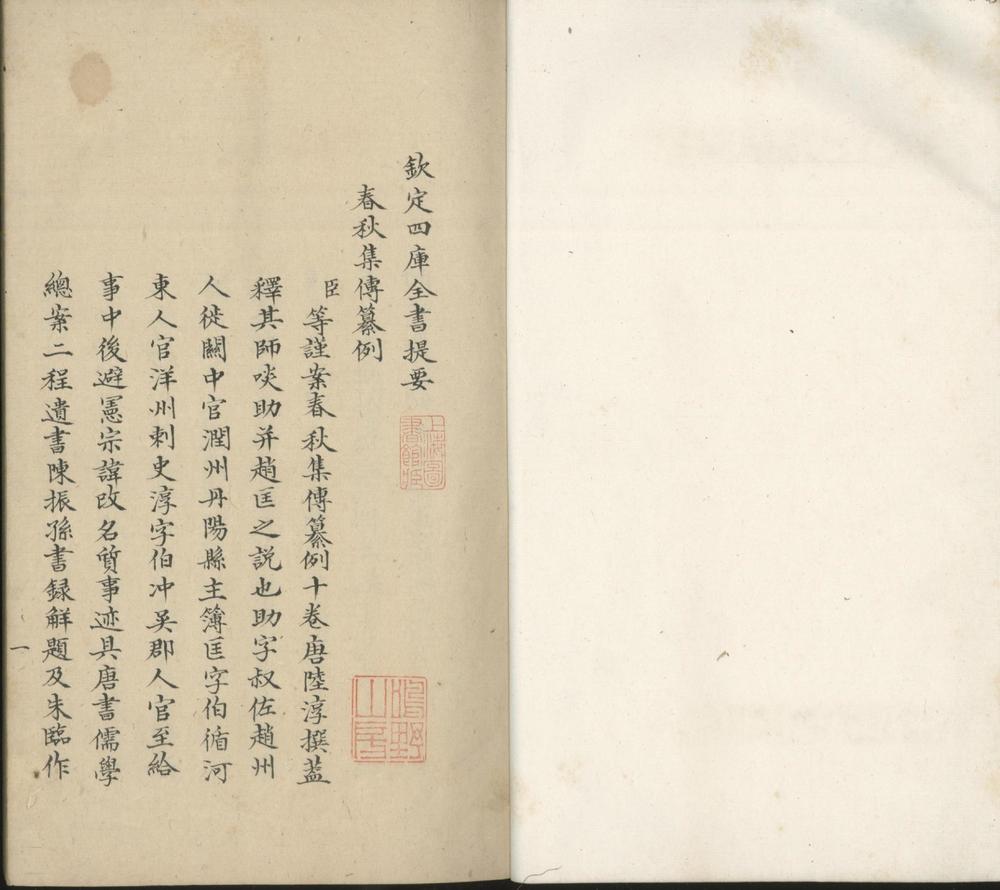 欽定四庫全書提要
春秋集傳纂例
臣等謹案春秋集傳纂例十卷唐陸淳撰蓋
釋其師啖助并趙匡之説也助字叔佐趙州
人徙關中官潤州丹陽縣主簿匡字伯循河
東人官洋州刺史淳字伯冲吴郡人官至給
事中後避憲宗諱改名質事迹具唐書儒學
總案二程遺書陳振孫書録解題及朱臨作
一
上海圖書館藏